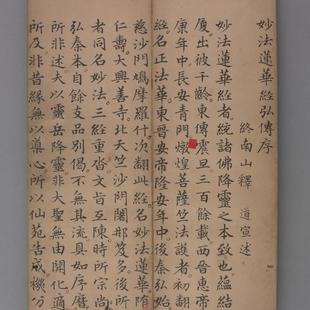 妙法蓮華經弘傳序
終南山釋 道宣述
妙法蓮華經者統諸佛降靈之本致也蘊結
厦出彼千齡東傳震旦三百餘載西晉惠帝
康年中長安青門燉煌菩薩竺法護者初翻
經名正法華東晉安帝隆安年中後秦弘始
慈沙門鳩摩羅什次翻此經名妙法蓮華隋
仁壽大興善寺北天竺沙門闍那笈多後所
者同名妙法三經重沓文旨互陳時所宗尚
弘秦本自餘支品別偈不無其流具如序曆
所非述夫以靈岳降靈非大聖無由開化適
所及非昔緣無以導心所以仙苑告成機分